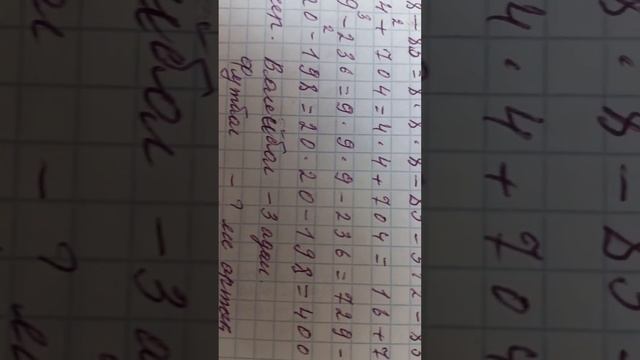 8 - 83 = 8 · 8 · 8 - 83 - 512 - 83
4² + 704 = 4 · 4 + 704 = 16 + 7
9³ - 236 = 9 · 9 · 9 - 236 = 729 -
20² - 198 = 20 · 20 - 198 = 400
Валейбол - 3 адам.
Футбол - ? м артық